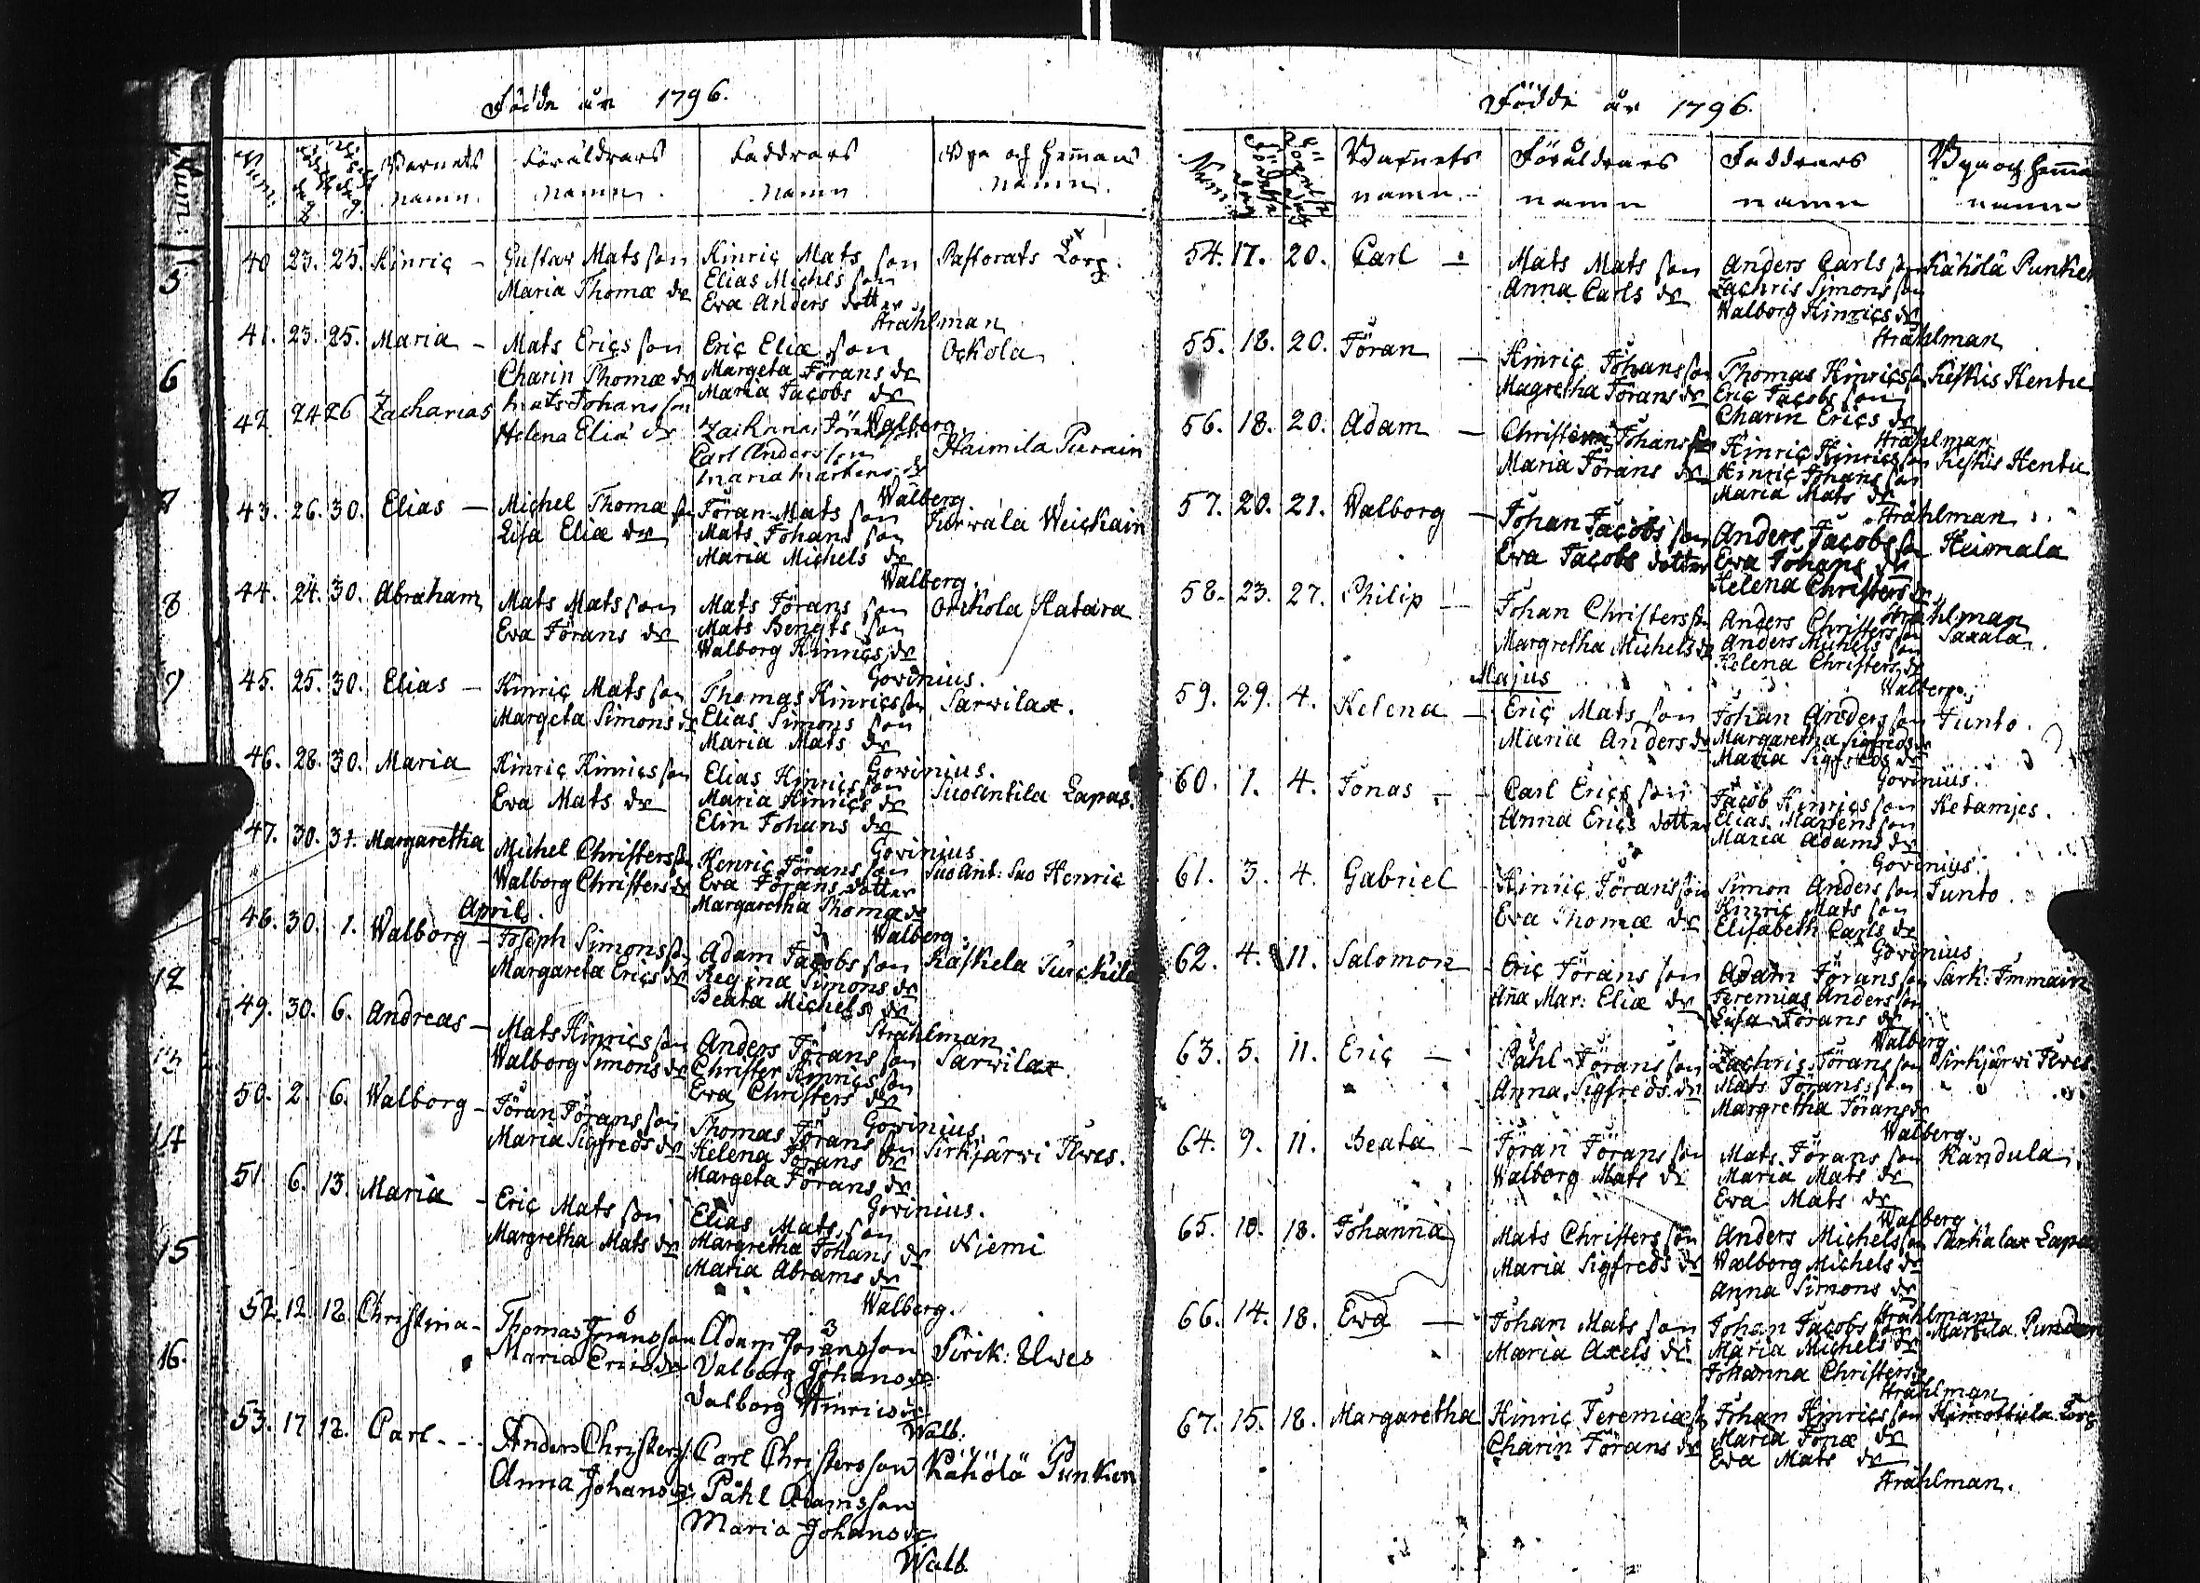 Födde år 1796.
Num. Barnets namn. Föräldrars namn. Faddrars namn By och Hemans namn.
40 23. 25. Hinric – Gustav Mats son Hinric Mats son Pastorats Torp.
Maria Thomæ dr Elias Michels son
Eva Anders dotter
Strahlman
41. 23. 25. Maria – Mats Erics son Eric Eliæ son Ockola
Charin Thomæ dr Margeta Jörans dr
Maria Jacobs dr
Walberg
42 24 26 Zacharias Mats Johans son Zachrias
Helena Eliæ dr Carl Anders son Haimila Purain
Maria Martens dr
Walberg
43. 26. 30. Elias – Michel Thomæ sn Jöran Mats son Jurvala Weickain
Lisa Eliæ dr Mats Johans son
Maria Michels dr
Walberg.
44. 24. 30. Abraham Mats Mats son Mats Jörans son Ockola Katara
Eva Jörans dr Mats Bengts son
Walborg Hinrics dr
Govinius.
45. 25. 30. Elias – Hinric Mats son Thomas Hinrics sn Sarvilax.
Margeta Simons dr Elias Simons son
Maria Mats dr
Govinius.
46. 28. 30. Maria Hinric Hinrics son Elias Hinrics son Suoantila Lapas.
Eva Mats dr Maria Hinrics dr
Elin Johans dr
Govinius
47. 30. 31. Margaretha Michel Christers sn Henric Jörans son Suo Ant: Suo Henric
Walborg Christers dr Eva Jörans dotter
Margaretha Thomæ dr
April. Walberg.
48. 30. 1. Walborg – Joseph Simons sn Adam Jacobs son Kaskela Turckila
Margareta Erics dr Regina Simons dr
Beata Michels dr
Strahlman
49. 30. 6. Andreas – Mats Hinrics son Anders Jörans son Sarvilax.
Walborg Simons dr Christer Hinrics son
Eva Christers dr
Govinius
50. 2. 6. Walborg – Jöran Jörans son Thomas Jörans son Sirkjärvi Ilves.
Maria Sigfreds dr Helena Jörans dr
Margeta Jörans dr
Govinius.
51 6. 13. Maria – Eric Mats son Elias Mats son Niemi
Margretha Mats dr Margretha Johans dr
Maria Abrams dr
Walberg.
52. 12. 18. Christina – Thomas Jörans son Adam Jörans son Sirik: Ilves
Maria Erics dr Valborg Johans dr
Valborg Hinrics dr
Walb:
53. 17 18. Carl – Anders Christers Carl Christers son Kähölä Punken
Anna Johans dr Påhl Adams son
Maria Johans dr
Walb.
5
6
7
8
9
12
13
14
15
16.
Födde år 1796.
Num. Födelse dag Barnets namn. Föräldrars namn Faddrars namn By och Hemma namn
54. 17. 20. Carl – Mats Mats son Anders Carls son Kähölä Punken
Anna Carls dr Zachris Simons son
Walborg Hinrics dr
Strahlman
55. 18. 20. Jöran – Hinric Johans son Thomas Hinrics sn Keskis Hentu
Magretha Jörans dr Eric Jacobs son
Charin Erics dr
Strahlman
56. 18. 20. Adam – Johans son Hinric Hinrics son Keskis Hentu
Maria Jörans dr Hinric Johans son
Maria Mats dr
Strahlman
57. 20. 21. Walborg – Johan Jacobs son Anders Jacobs sn Heimala
Eva Jacobs dotter Eva Johans dr
Helena Christers dr
Strahlman
58. 23. 27. Philip – Johan Christers sn Anders Christers son Saxala.
Margretha Michels dr Anders Michels son
Helena Christers dr
Majus Walberg.
59. 29. 4. Helena – Eric Mats son Johan Anders son Junto.
Maria Anders dr Margaretha Sigfreds dr
Maria Sigfreds dr
Govinius.
60. 1. 4. Jonas – Carl Erics son Jacob Hinrics son Ketamjes.
Anna Erics dotter Elias Martens son
Maria Adams dr
Govinius.
61. 3. 4. Gabriel – Hinric Jörans son Simon Anders son Junto.
Eva Thomæ dr Hinric Mats son
Elisabeth Carls dr
Govinius
62. 4. 11. Salomon – Eric Jörans son Adam Jörans son Särk: Immain
Aña Mar: Eliæ dr Jeremias Anders son
Lisa Jörans dr
Walberg
63. 5. 11. Eric – Påhl Jörans son Zachris Jörans son Sirkjärvi Ilves
Anna Sigfreds dr Mats Jörans son
Margretha Jörans dr
Walberg.
64. 9. 11. Beata – Jöran Jörans son Mats Jörans son Kandula
Walborg Mats dr Maria Mats dr
Eva Mats dr
Walberg
65. 10. 18. Johanna Mats Christers son Anders Michels son Särkalax Lapa
Maria Sigfreds dr Walborg Michels dr
Anna Simons dr
Strahlman
66. 14. 18. Eva – Johan Mats son Johan Jacobs son Martila
Maria Axels dr Maria Michels dr
Johanna Christers dr
Strahlman
67. 15. 18. Margaretha Hinric Jeremiæ sn Johan Hinrics son Himottula Torp
Charin Jörans dr Maria Jonæ dr
Eva Mats dr
Strahlman.